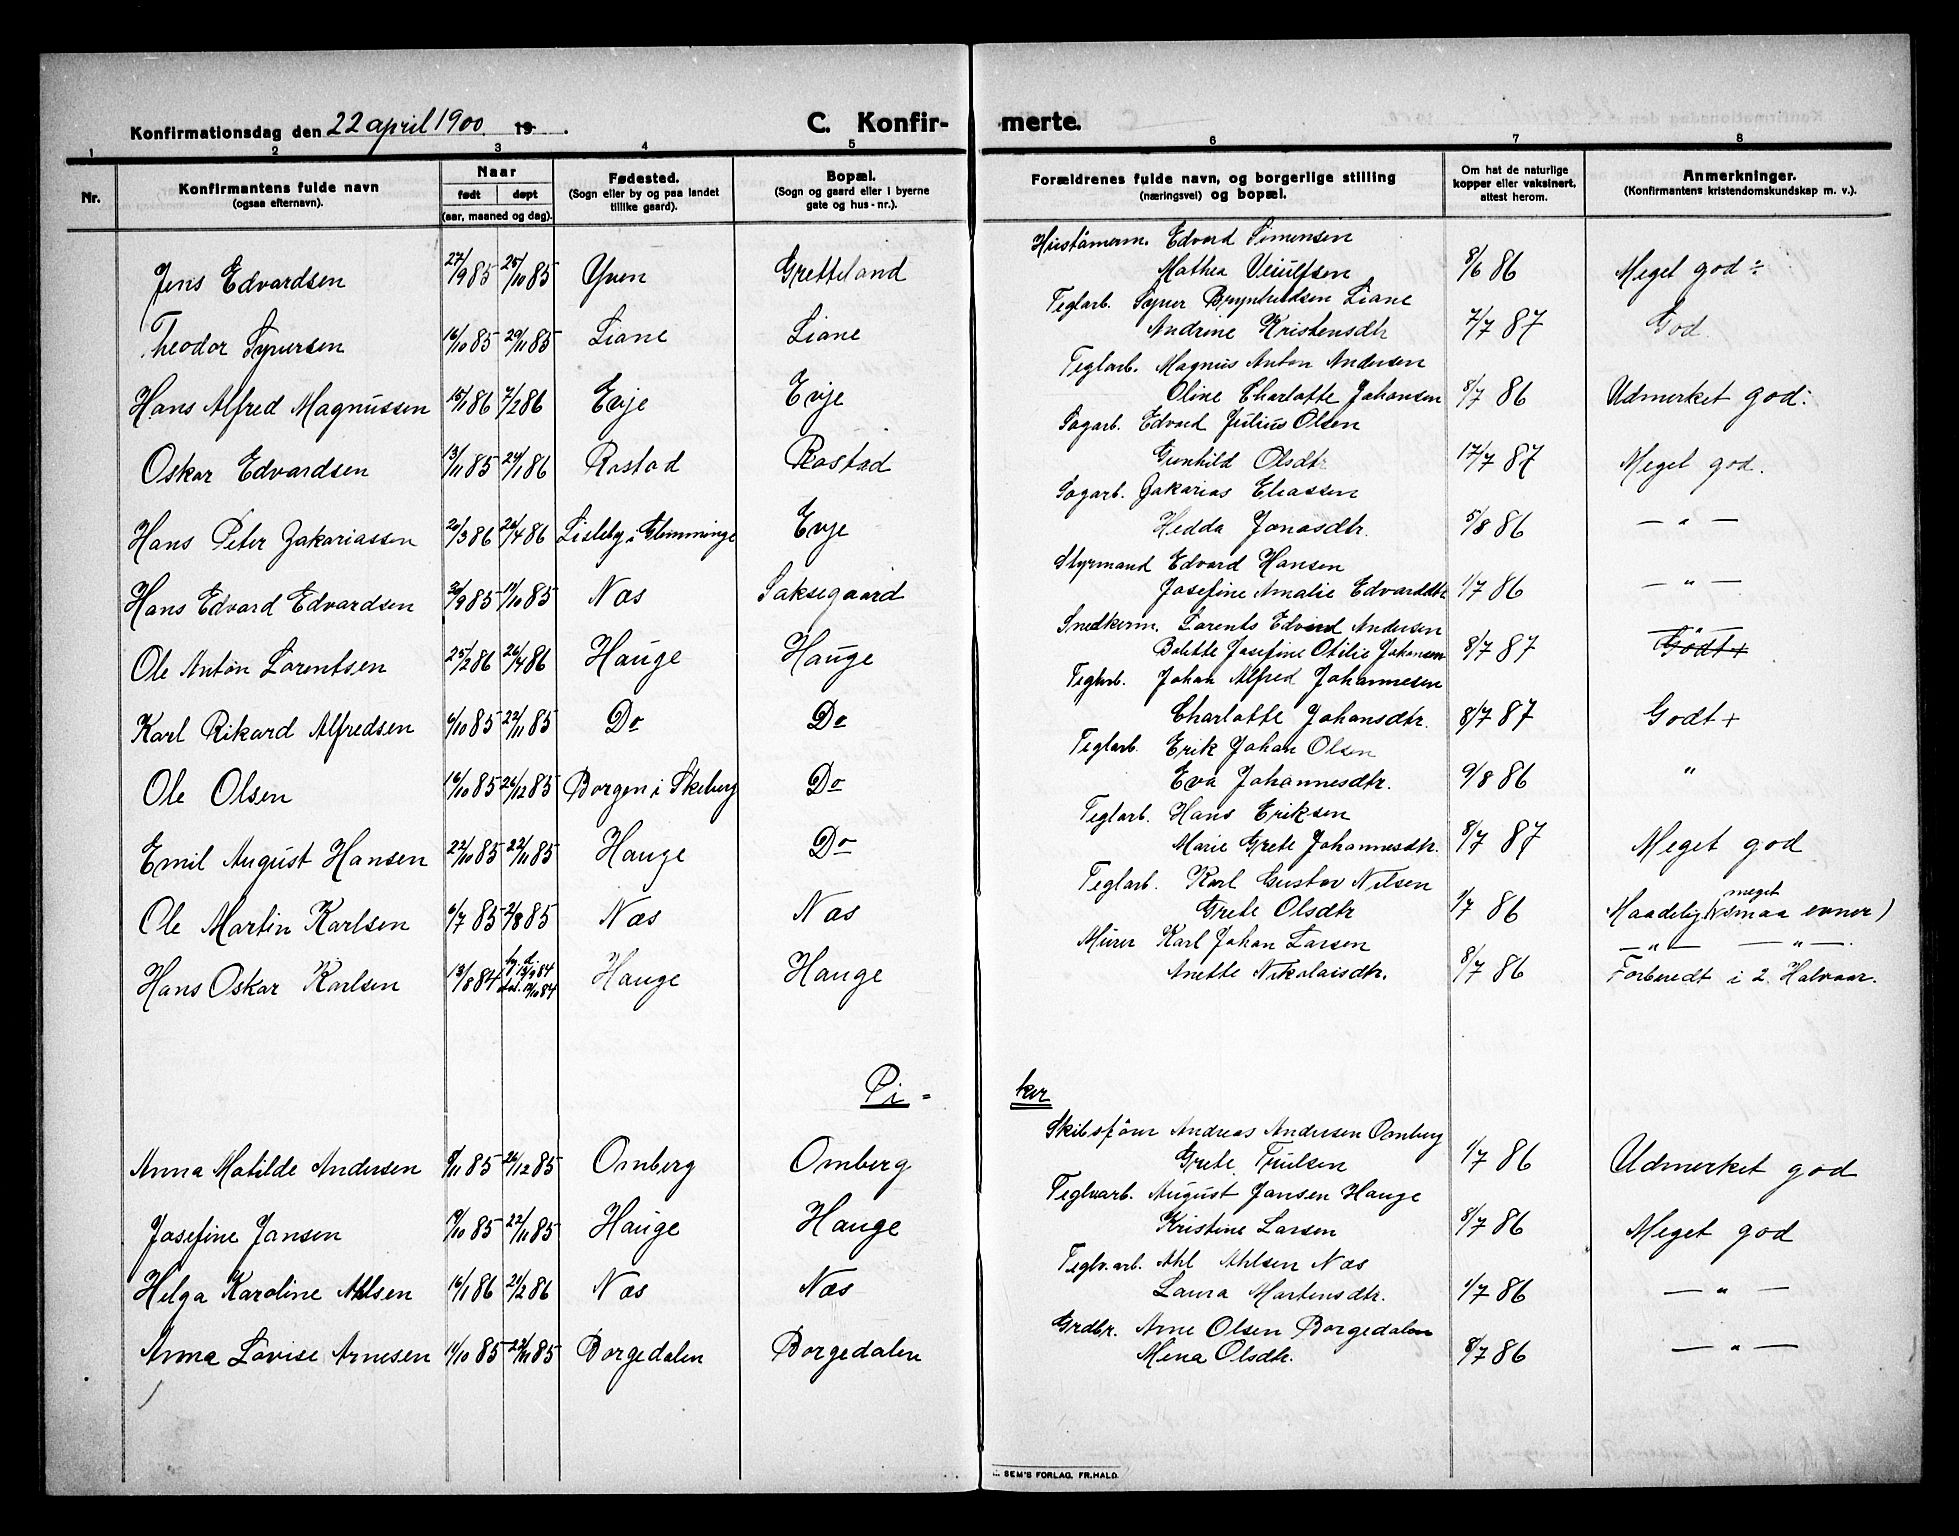 Konfirmationsdag den 22 april 1900 19 .
C. Konfir- merte.
1 2 3 4 5 6 7 8
Nr.
Konfirmantens fulde navn
(ogsaa efternavn).
Naar
født døpt
(aar, maaned og dag).
Fødested.
(Sogn eller by og paa landet
tillike gaard).
Bopæl.
(Sogn og gaard eller i byerne
gate og hus-nr.).
Forældrenes fulde navn, og borgerlige stilling
(næringsvei) og bopæl.
Om hat de naturlige
kopper eller vaksinert,
attest herom.
Anmerkninger.
(Konfirmantens kristendomskundskap m. v.).
Hustømerm. Edvard Simensen
Jens Edvardsen 27/9 85 25/10 85 Yven Gretteland Mathea Veiulfsen 8/6 86 Meget god ÷
Teglarb. Syver Brynhildsen Liane
Theodor Syversen 16/10 85 29/11 85 Liane Liane Andrine Kristensdtr 7/7 87 God.
Teglarb. Magnus Anton Andersen
Hans Alfred Magnussen 15/1 86 7/2 86 Evje Evje Oline Charlotte Johansen 8/7 86 Udmerket god.
Sagarb. Edvard Julius Olsen
Oskar Edvardsen 13/11 85 24/1 86 Rostad Rostad Gunhild Olsdtr 17/7 87 Meget god.
Sagarb. Zakarias Eliassen
Hans Peter Zakariassen 20/3 86 26/4 86 Lisleby i Glemminge Evje Hedda Jonasdtr. 5/8 86 — " —
Styrmand Edvard Hansen
Hans Edvard Edvardsen /9 85 /10 85 Næs Saksegaard Josefine Amalie Edvarddtr 1/7 86 — " —
Snedkerm. Lorents Edvard Andersen
Ole Anton Lorentsen 25/2 86 26/4 86 Hauge Hauge Bolette Josefine Otilie Johansen 8/7 87 — " — Godt +
Teglarb. Johan Alfred Johannesen
Karl Rikard Alfredsen 6/10 85 22/11 85 Do Do Charlotte Johansdtr. 8/7 87 Godt +
Teglarb. Erik Johan Olsen
Ole Olsen 16/10 85 26/12 85 Borgen i Skeberg Do Eva Johannesdtr. 9/8 86 "
Teglarb. Hans Eriksen
Emil August Hansen 22/10 85 22/11 85 Hauge Do Marie Grete Johannesdtr. 8/7 87 Meget god
Teglarb. Karl Gustav Nilsen
Ole Martin Karlsen 6/7 85 2/8 85 Næs Næs Grete Olsdtr 1/7 86 Maadelig (meget smaa evner)
Murer Karl Johan Larsen — " — — " —.
Hans Oskar Karlsen 13/8 84 hj. d. /9 84 Hauge Hauge Anette Nikolaisdtr. 8/7 86 Forberedt i 2 Halvaar.
/10 84
Pi = ker
Skibsfører Andreas Andersen Omberg
Anna Matilde Andersen /11 85 26/12 85 Omberg Omberg Grete Trulsen 1/7 86 Udmerket god
Teglvarb. August Jansen Hauge
Josefine Jansen /10 85 22/11 85 Hauge Hauge Kristine Larsen 8/7 86 Meget god
Teglv.arb. Ahl Ahlsen Næs
Helga Karoline Ahlsen 16/1 86 21/2 86 Næs Næs Laura Martensdtr. 1/7 86 — " —
Grdbr. Arne Olsen Borgedalen
Anna Lovise Arnesen 14/10 85 22/11 85 Borgedalen Borgedalen Mina Olsdtr. 8/7 86 — " —
SEM'S FORLAG, FR.HALD.